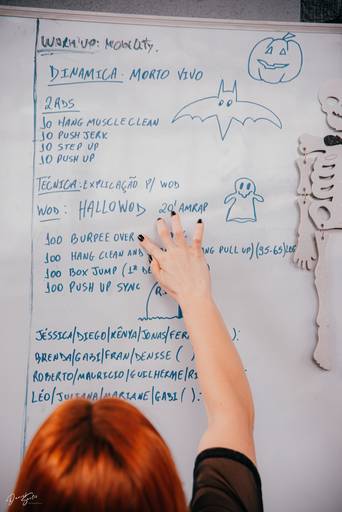 WARM UP: MOBILITY.
DINAMICA: MORTO VIVO
2RDS
10 HANG MUSCLE CLEAN
10 PUSH JERK
10 STEP UP
10 PUSH UP
TÉCNICA: EXPLICAÇÃO P/ WOD
WOD: HALLOWOD 20' AMRAP
100 BURPEE OVER
100 HANG CLEAN AND NG PULL UP) (95-65)LBS
100 BOX JUMP (1ª DE
100 PUSH UP SYNC
R.I
JÉSSICA/DIEGO/KÊNYA/JONAS/FER ):
BRENDA/GABI/FRAN/DENISE ( ):
ROBERTO/MAURICIO/GUILHERME/RI
LÉO/JULIANA/MARIANE/GABI ( ):